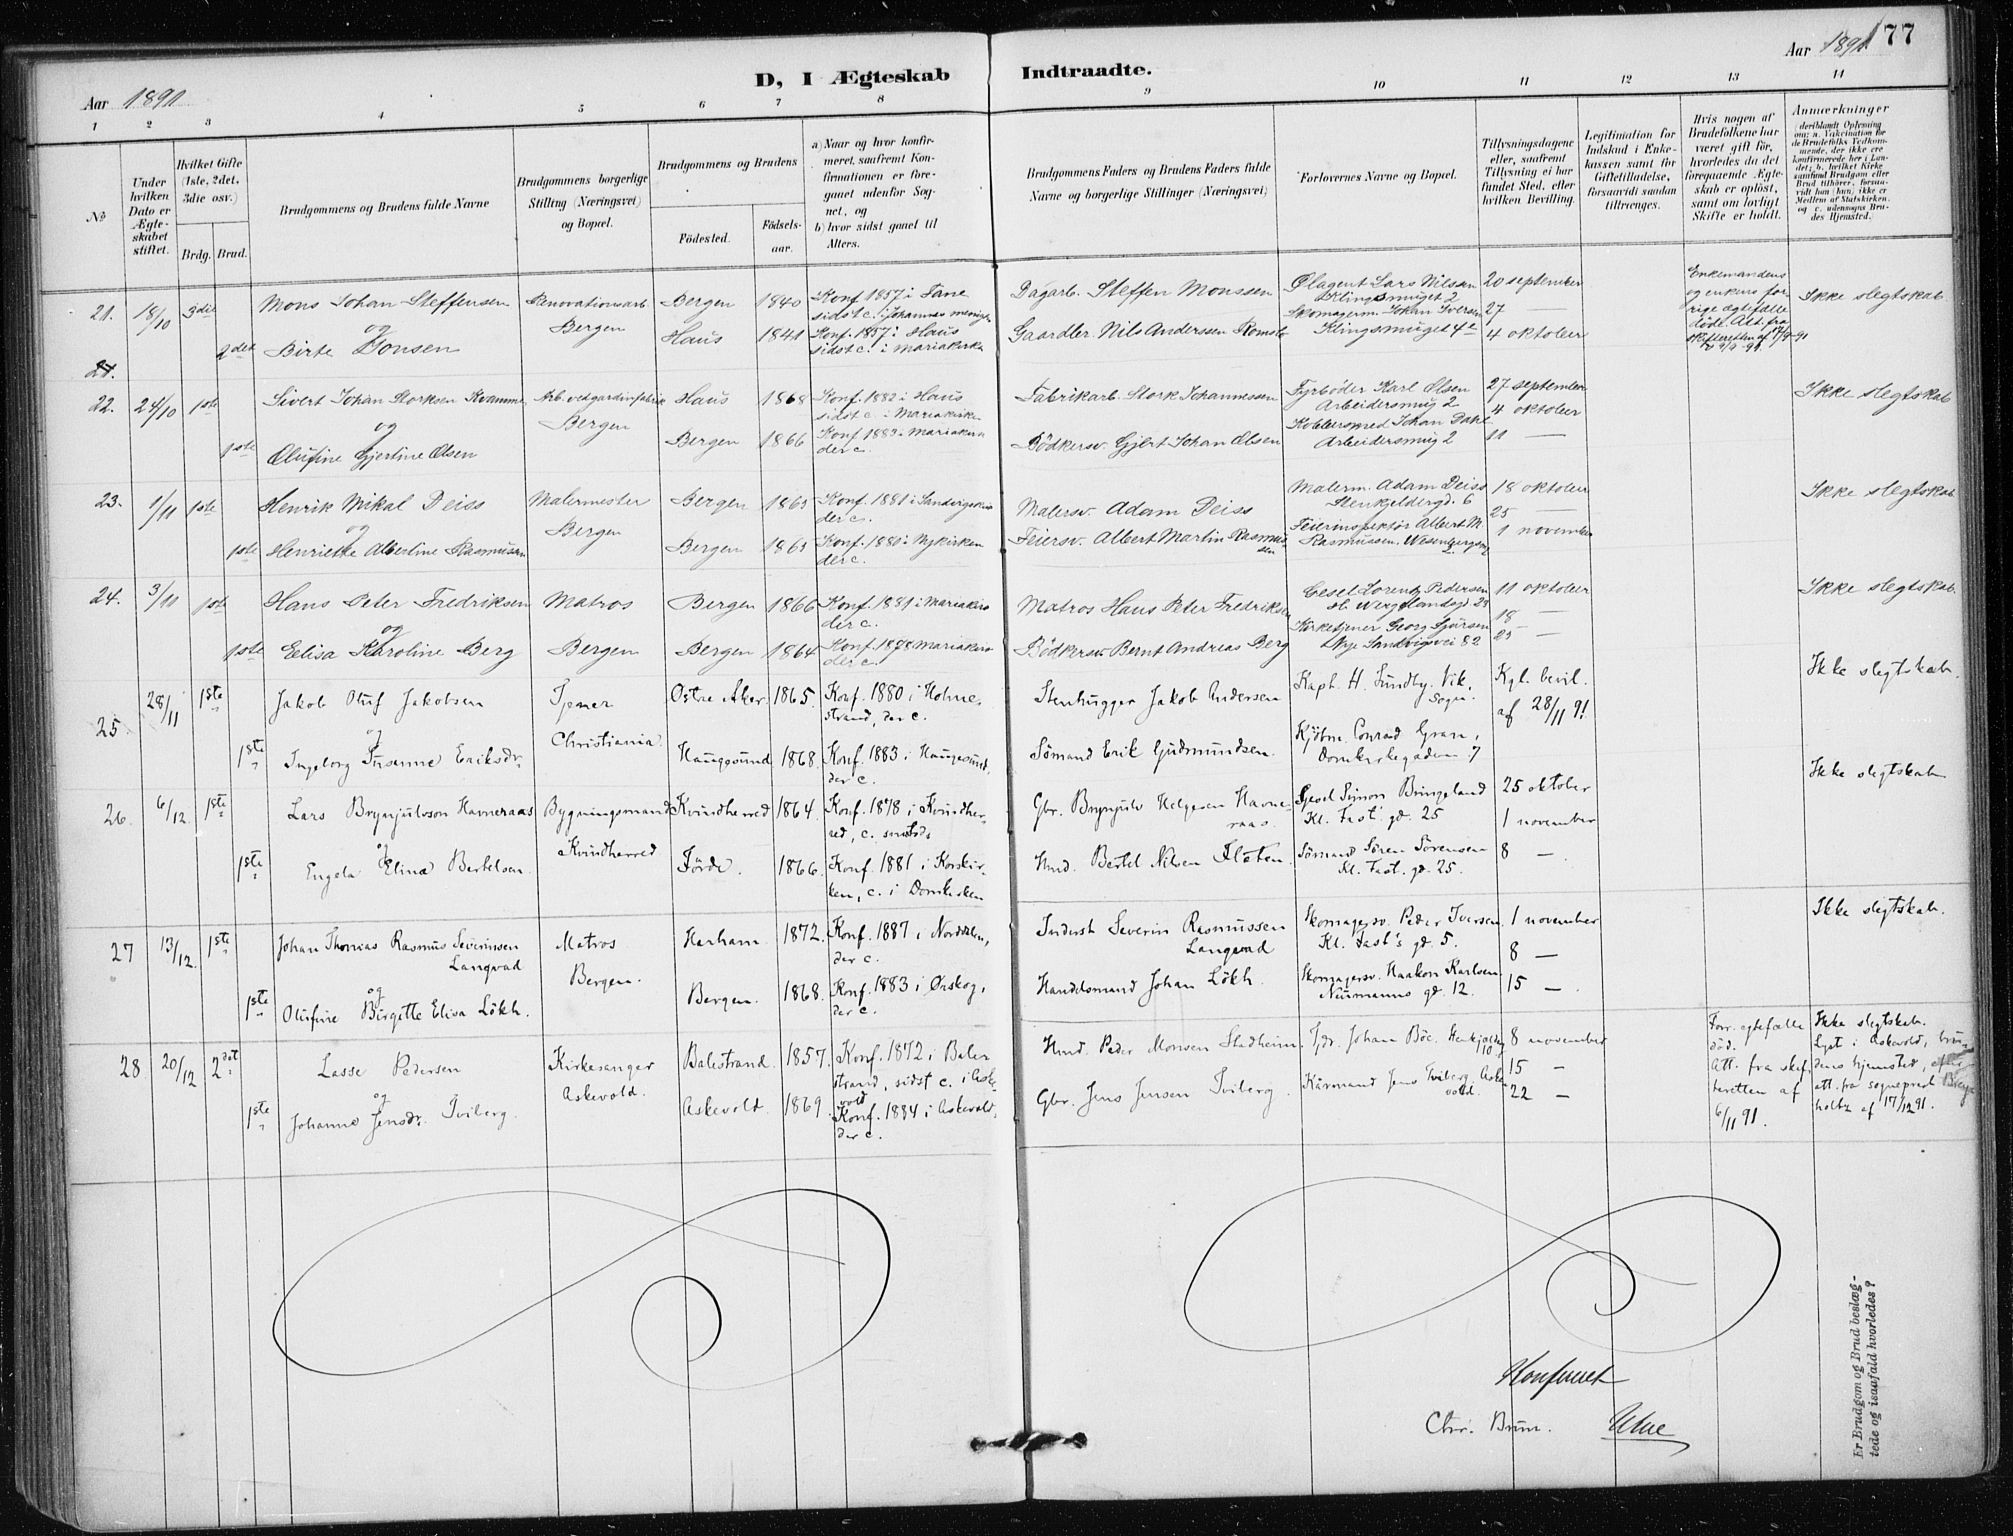 177
D, I Ægteskab Indtraadte.
Aar 1891
Aar 1891
1 2 3 4 5 6 7 8 9 10 11 12 13 14
№
Under hvilken Dato er Ægteskabet stiftet.
Hvilket Gifte (1ste, 2det, 3die osv.)
Brdg. Brud.
Brudgommens og Brudens fulde Navne
Brudgommens borgerlige Stilling (Næringsvei) og Bopæl.
Brudgommens og Brudens
Fødested. Fødselsaar.
a) Naar og hvor konfirmeret, saafremt Konfirmationen er foregaaet udenfor Sognet, og
b) hvor sidst gaaet til Alters.
Brudgommens Faders og Brudens Faders fulde Navne og borgerlige Stillinger (Næringsvei)
Forlovernes Navne og Bopæl.
Tillysningsdagene eller, saafremt Tillysning ei har fundet Sted, efter hvilken Bevilling.
Legitimation for Indskud i Enkekassen samt for Giftetilladelse, forsaavidt saadan tiltrænges.
Hvis nogen af Brudefolkene har været gift før, hvorledes da det foregaaende Ægteskab er opløst, samt om lovligt Skifte er holdt.
Anmærkninger
(deriblandt Oplysning om: a. Vaccination for de Brudefolks Vedkommende, der ikke ere konfirmerede her i Landet; b. hvilket Kirkesamfund Brudgom eller Brud tilhører, forsaavidt han (hun) ikke er Medlem af Statskirken, og c. udensogns Brudes Hjemsted.)
21. 18/10 3die Mons Johan Steffensen Renovationsarb. Bergen 1840 Konf. 1857 i Fane sidst c. i Johannes menigh. Dagarb. Steffen Monssen Ølagent Lars Nilsen Klingsmuget 2 20 september Enkemandens og enkens forrige egtefælle død. Att. fra skifteretten af Ikke slegtskab.
og Bergen
2det Birte Jonsen Haus 1841 Konf. 1857 i Haus sidst c. i Mariakirke Gaardbr. Nils Anderssen Romslo Skomagerm. Johan Iversen Klingsmuget 4 27 — 4 oktober
21.
22. 24/10 1ste Sivert Johan Storksen Kvamme Arb. ved gardinfabrik Haus 1868 Konf. 1882 i Haus sidst c. i Mariakirken Fabrikarb. Stork Johannessen Fyrbøder Karl Olsen Arbeidersmug 2 27 september 4 oktober Ikke slegtskab
og Bergen
1ste Olufine Gjertine Olsen Bergen 1866 Konf. 1883 i Mariakirken der c. Bødkersv. Gjert Johan Olsen Kobbersmed Johan Dahl Arbeidersmug 2 11 —
23. 1/11 1ste Henrik Mikal Deiss Malermester Bergen 1863 Konf. 1881 i Sandvigskir der c. Malersv. Adam Deiss Malerm. Adam Deiss Stenkjeldergd. 6 18 oktober Ikke slegtskab
og Bergen 25 —
1ste Henriette Albertine Rasmussen Bergen 1863 Konf. 1880 i Nykirken der c. Feiersv. Albert Martin Rasmussen Feierinspektør Albert M. Rasmussen. 1 november
24. 3/11 1ste Hans Peter Fredriksen Matros Bergen 1866 Konf. 1881 i Mariakirk der c. Matros Hans Peter Fredriksen Gesel Lorentz Pedersen 11 oktober Ikke slegtskab.
og 18 —
1ste Elisa Karoline Berg Bergen Bergen 1864 Konf. 1878 Mariakirk der c. Bødkersv. Bernt Andreas Berg Kirketjener Georg Sjursen Nye Sandvigsvei 82 25 —
25. 28/11 1ste Jakob Oluf Jakobsen Tjener Østre Aker 1865. Konf. 1880 i Holmestrand, der c. Stenhugger Jakob Andersen Kapt. H. Sundby. Vik. Sogn. Kgl. bevil. af 28/11 91. Ikke slegtskab.
og Christiania
1ste Ingeborg Susanne Eriksdr. Haugesund 1868. Konf. 1883 i Haugesund, der c. Sømand Erik Gudmundsen. Kjøbm. Conrad Gran, Domkirkegaden 7
26. 6/12 1ste Lars Brynjulvson Havneraas Bygningsmand Kvindherred 1864. Konf. 1878 i Kvindherred, c. smstds Gbr. Brynjulv Helgesen Havneraas. Gjesel Simon Bringeland Kl. Fast. gd. 25 25 oktober 1 november Ikke slegtskab
og Kvindherred
1ste Engela Elina Bertelsen Førde. 1866. Konf. 1881 i Korskirken, c. i Domkirken Hmd. Bertel Nilsen Floten. Sømand Søren Sørensen Kl. Fast. gd. 25. 8 —.
27 13/12. 1ste Johan Thomas Rasmus Severinsen Langvad Matros Harham 1872. Konf. 1887 i Norddalen, der c. Inderst Severin Rasmussen Langvad Skomagersv. Peder Iversen Kl. Fast's gd. 5. 1 november 8 — Ikke slegtskab.
og Bergen.
1ste Olufine Birgitte Elisa Løkh. Bergen. 1868. Konf. 1883 i Ørskog, der c. Handelsmand Johan Løkh. Skomagersv. Haakon Karlsen Neumanns gd. 12. 15 —.
28 20/12 2det Lasse Pedersen Kirkesanger Balestrand. 1857. Konf. 1872 i Balestrand, sidst c. i Askevold Hmd. Peder Monsen Stadheim Tjdr. Johan Bøe. 8 november 15 — Forr. egtefælle død. Att. fra skifteretten af 6/11 91. Ikke slegtskab. Lyst i Askevold, brudens hjemsted, att. fra sogneprest holtz af 17/12 91.
og Askevold.
1ste Johanne Jensdr. Tviberg. Askevold. 1869. Konf. 1884 i Askevold, der c. Gbr. Jens Jensen Tviberg. Kårmand Jens Tviberg, Askevold. 22 —
Konfereret
Chr. Brun.
Er Brudgom og Brud beslægtede og isaafald hvorledes?